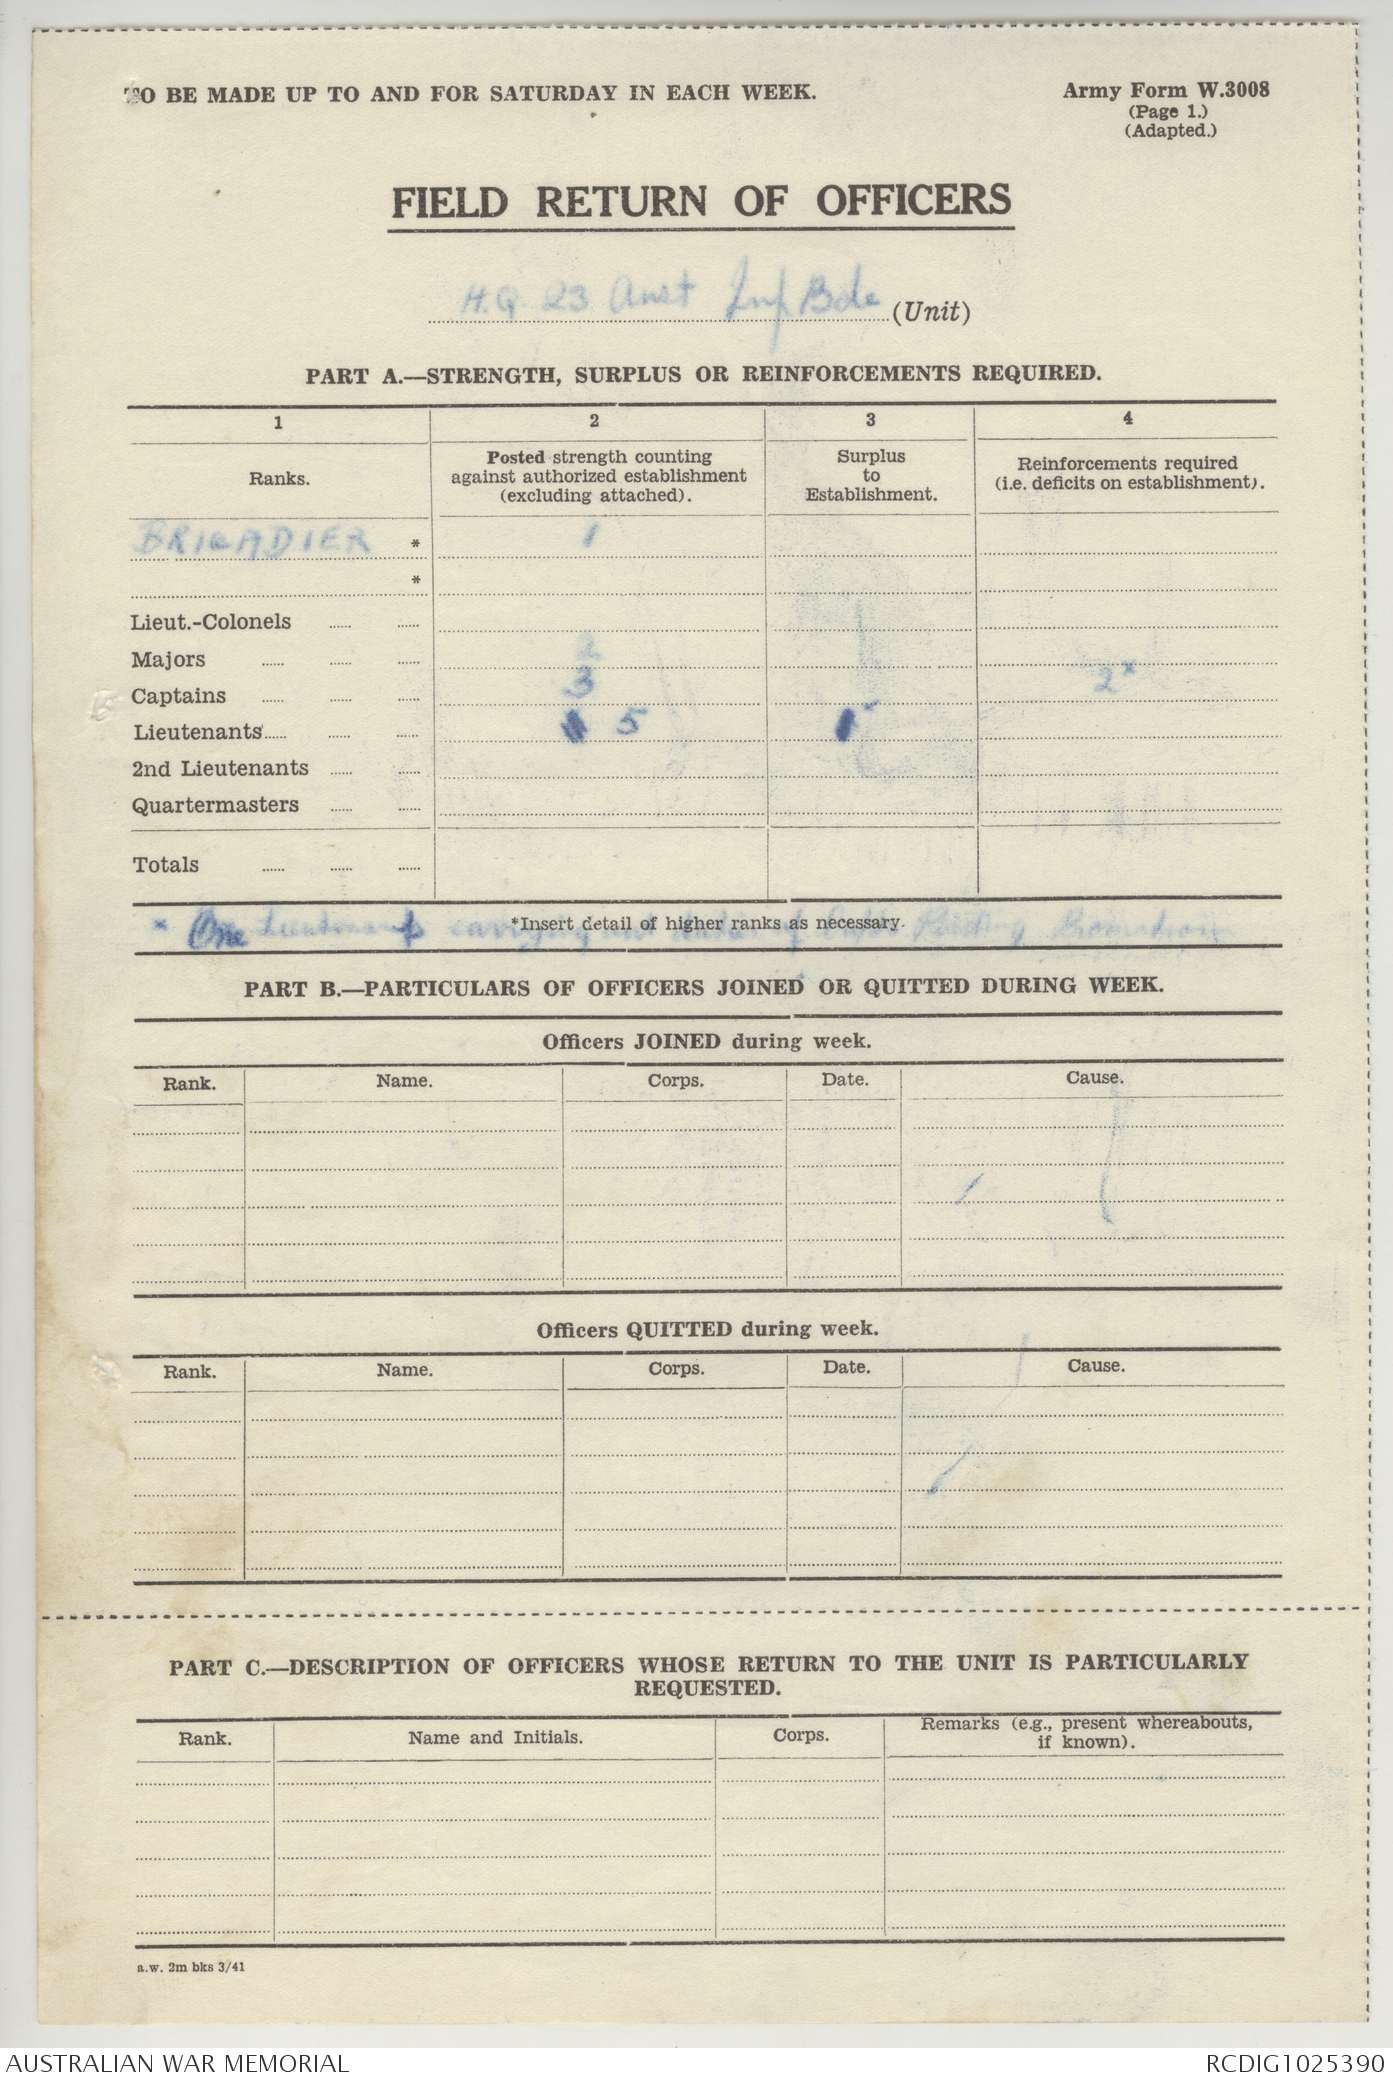 TO BE MADE UP TO AND FOR SATURDAY IN EACH WEEK.
Army Form W.3008
(Page 1.)
(Adapted.)
FIELD RETURN OF OFFICERS
H.Q. 23 Aust Inf Bde (Unit)
PART A.—STRENGTH, SURPLUS OR REINFORCEMENTS REQUIRED.
1 2 3 4
Ranks. Posted strength counting against authorized establishment (excluding attached). Surplus to Establishment. Reinforcements required (i.e. deficits on establishment).
BRIGADIER * 1
*
Lieut.-Colonels ...... ......
Majors ...... ...... ...... 2
Captains ...... ...... ...... 3 2*
Lieutenants ...... ...... ...... 5
2nd Lieutenants ...... ......
Quartermasters ...... ......
Totals ...... ...... ......
*Insert detail of higher ranks as necessary.
* One Lieutenant carrying out duties of Capt. Pending Promotion
PART B.—PARTICULARS OF OFFICERS JOINED OR QUITTED DURING WEEK.
Officers JOINED during week.
Rank. Name. Corps. Date. Cause.
Officers QUITTED during week.
Rank. Name. Corps. Date. Cause.
PART C.—DESCRIPTION OF OFFICERS WHOSE RETURN TO THE UNIT IS PARTICULARLY
REQUESTED.
Rank. Name and Initials. Corps. Remarks (e.g., present whereabouts, if known).
a.w. 2m bks 3/41
AUSTRALIAN WAR MEMORIAL
RCDIG1025390